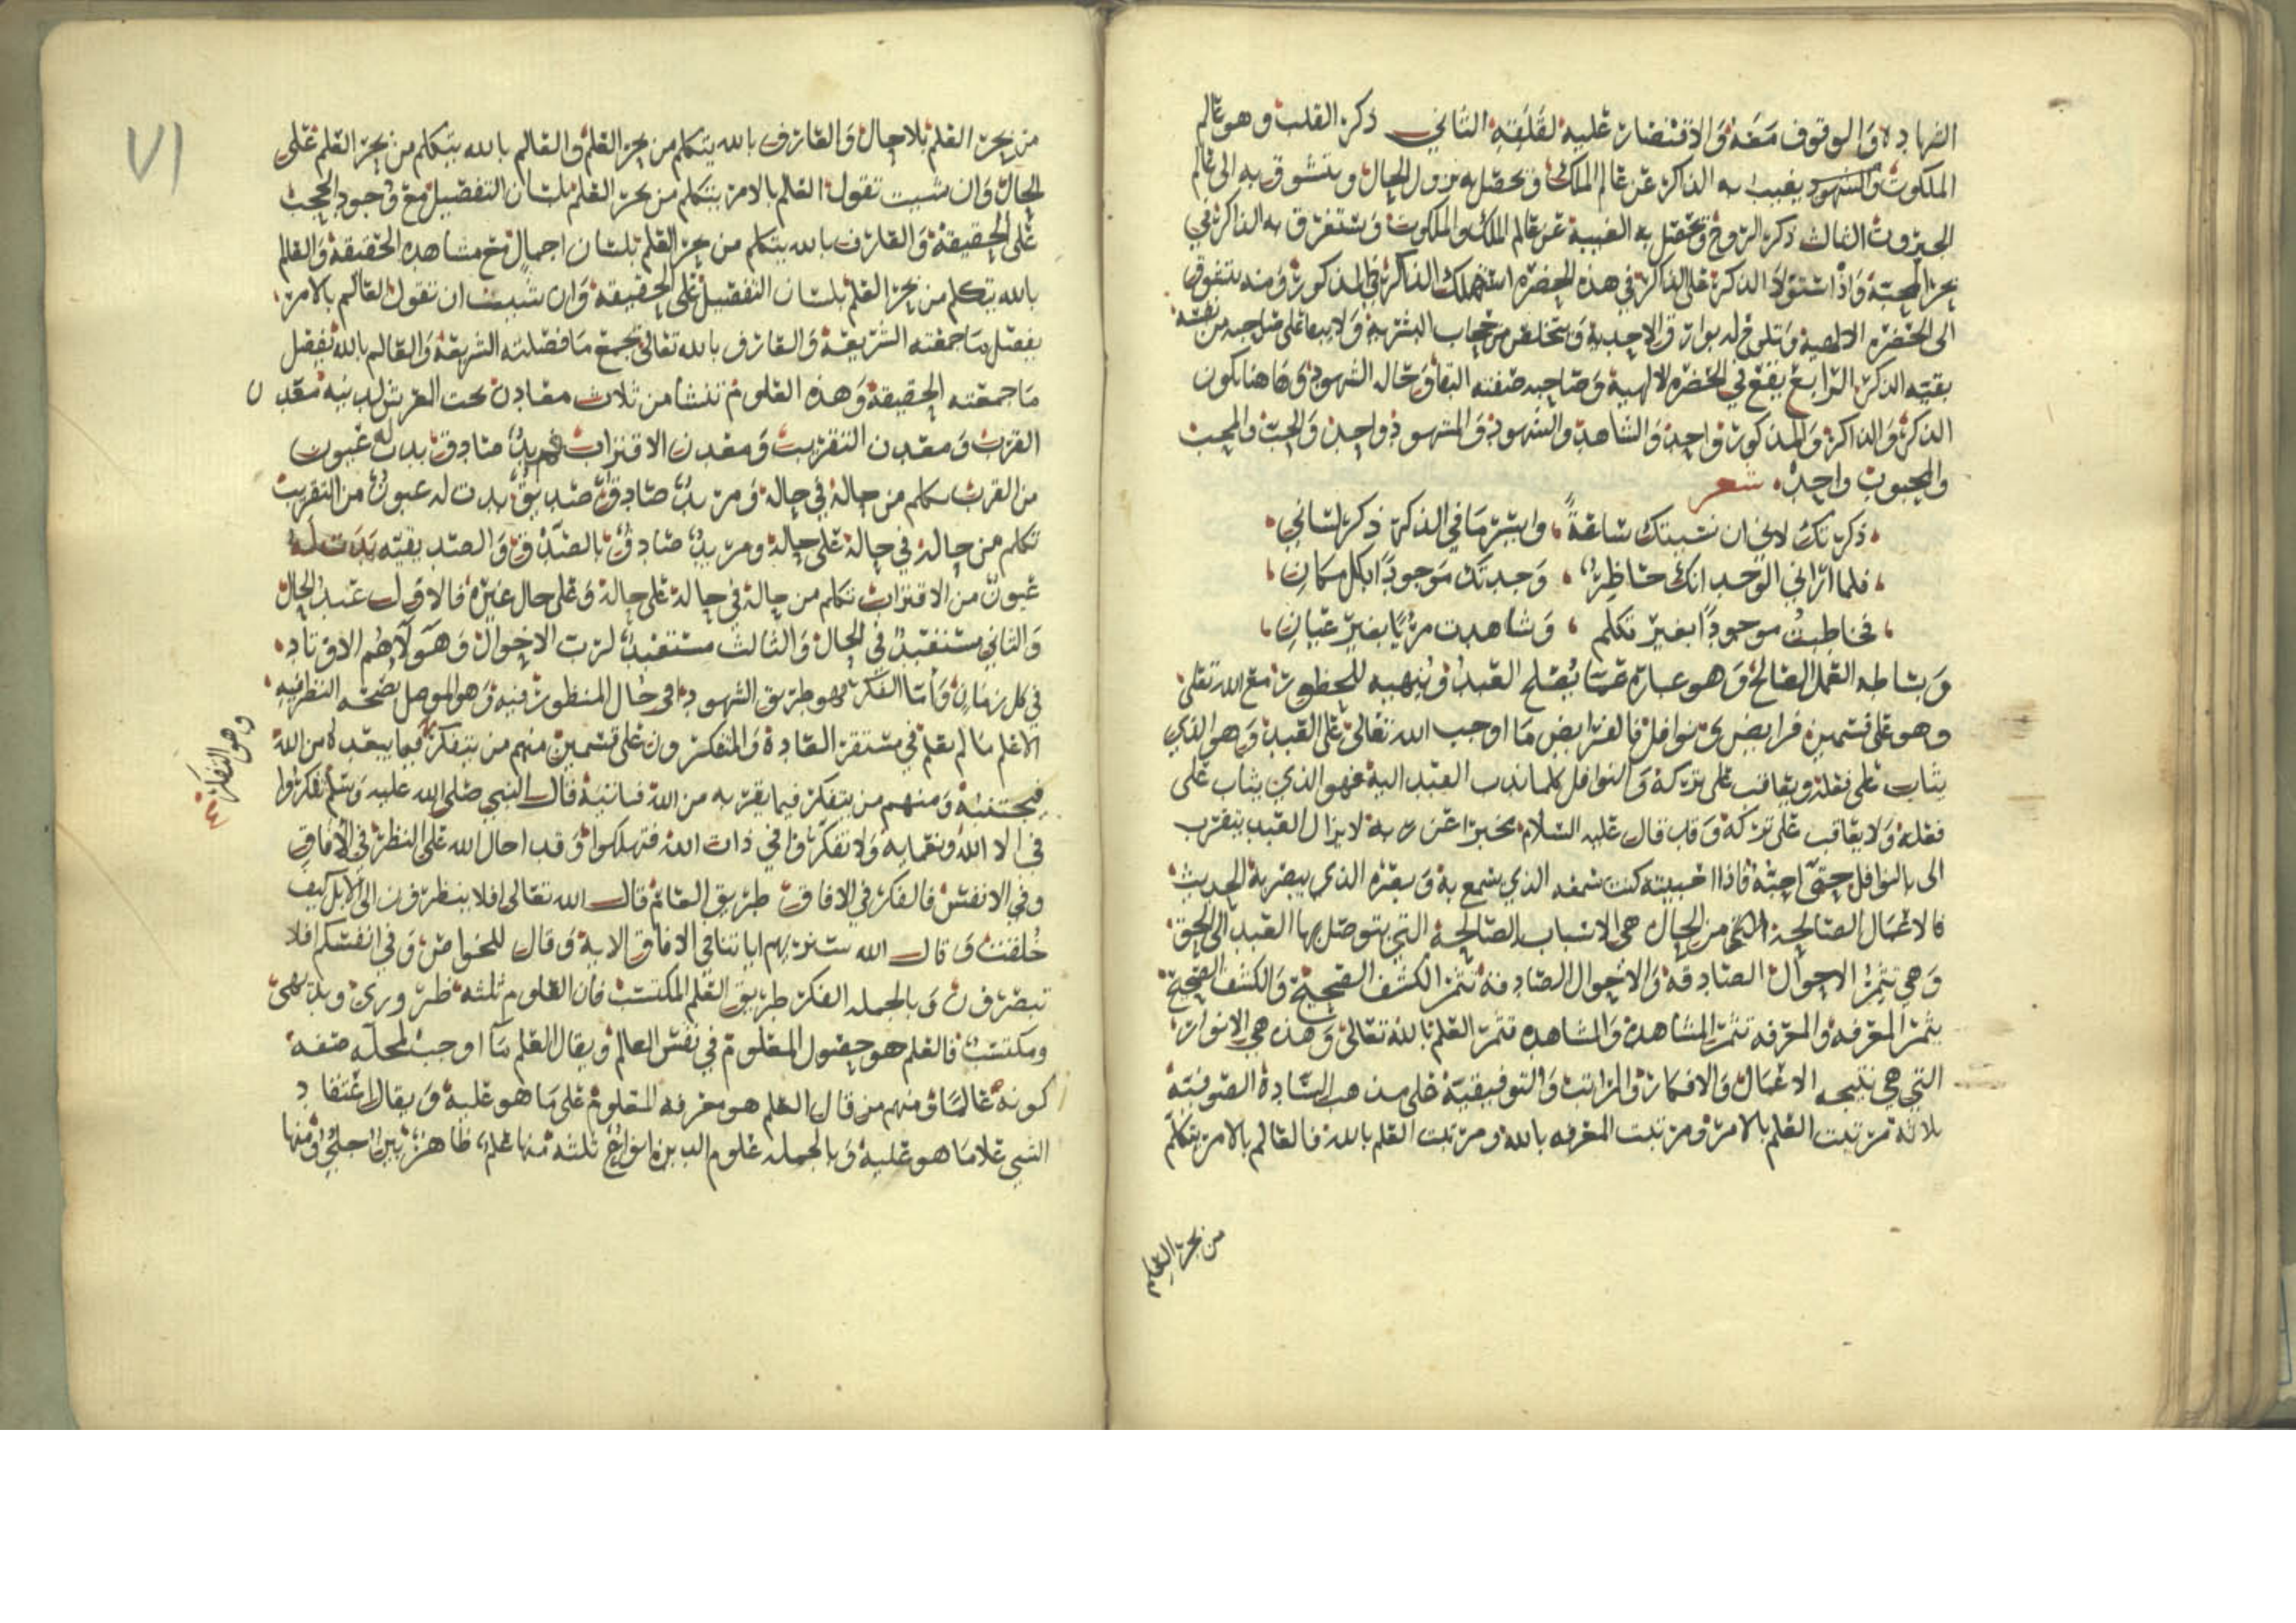 الشهادة والوقوف معه والاقتصار عليه لقلقته الثاني ذكر القلب وهو عالم
الملكوت والشهود يغيب به الذاكر عن عالم الملك ويحصل به نزول الحال ويتشوق به الى عالم
الجبروت الثالث ذكر الروح وتحصل به الغيبة عن عالم الملك والملكوت ويستغرق به الذاكر في
بحر المحبة واذا استولا الذكر على الذاكر في هذه الحضرة استهلك الذاكر في المذكور ومنه يتفوق
الى الحضرة الالهية وتلوح له بوارق الاحدية ويتخلص من حجاب البشرية ولا يبقا على صاحبه من نفسه
بقيته الذكر الرابع يقع في الحضرة الالهية وصاحبه صفته البقا وحاله الشهود وهاهنا يكون
الذكر والذاكر والمذكور واحد والشاهد والشهود والمشهود واحد والحب والمحب
والمحبوب واحد شعر
ذكرتك لا اني نسيتك ساعة وايسر ما في الذكر ذكر لساني
فلما اراني الوجد انك حاظر وجدتك موجودا بكل مكان
فخاطبت موجودا بغير تكلم وشاهدت مريا بغير عيان
وبشاطه العمل الصالح وهو عبارة عما يصلح العبد وينهيه للحظور مع الله تعلى
وهو على قسمين فرايض ونوافل فالفرايض ما اوجب الله تعالى على العبد وهو الذي
يثاب على فعله ويعاقب على تركه والنوافل كلما ندب العبد اليه فهو الذي يثاب على
فعله ولا يعاقب على تركه وقد قال عليه السلام مخبرا عن ربه لا يزال العبد يتقرب
الى بالنوافل حتى احبه فاذا احببته كنت سمعه الذي يسمع به وبصره الذي يبصر به الحديث
فالاعمال الصالحة من الحال هي الاسباب الصالحة التي يتوصل بها العبد الى الحق
وهي تثمر الاحوال الصادقه والاحوال الصادقه تثمر الكشف الصحيح والكشف الصحيح
يثمر المعرفه والمعرفه تثمر المشاهده والمشاهده تثمر العلم بالله تعالى وهذه هي الانوار
التي هي نتيجه الاعمال والافكار والمراتب والتوفيقية على مذهب السادة الصوفية
ثلاثة مرتبت العلم بالامر ومرتبت المعرفه بالله ومرتبت العلم بالله فالعالم بالامر يتكلم
من بحر العلم
٧١
من بحر العلم بلا حال والعارف بالله يتكلم من بحر العلم والعالم بالله يتكلم من بحر العلم على
الحال وان شيت تقول العالم بالامر يتكلم من بحر العلم بلسان التفصيل مع وجود الحجب
على الحقيقة والعارف بالله يتكلم من بحر العلم بلسان اجمال مع مشاهده الحقيقة والعالم
بالله يتكلم من بحر العلم بلسان التفصيل على الحقيقة وان شيت ان تقول العالم بالامر
يفصل ما جمعته الشريعة والعارف بالله تعالى يجمع ما فصلته الشريعة والعالم بالله يفصل
ما جمعته الحقيقة وهذه العلوم تنشا من ثلاث معادن تحت العرش لدنيه معدن
القرب ومعدن التقريب ومعدن الاقتراب فمريد صادق بدت له عيون
من القرب تكلم من حالة في حالة ومريد صادق صديق بدت له عيون من التقريب
تكلم من حالة في حالة على حالة ومريد صادق بالصدق والصديقيه بدت له
عيون من الاقتراب تكلم من حالة في حالة على حالة وعلى حال غيره فالاول عبد الحال
والثاني مستعبد في الحال والثالث مستعبد لرب الاحوال وهولاهم الاوتاد
في كل زمان واما الفكر فهو طريق الشهود في حال المنظور فيه وهو الموصل بصحه النظر فيه
الا علم ما لم يعلم في مستقر العادة والمتفكرون على قسمين منهم من يتفكر فيما يبعده من الله
وهو التفكر
فيجتنبه ومنهم من يتفكر فيما يقربه من الله فياتيه قال النبي صلى الله عليه وسلم تفكروا
في الا الله ونعمايه ولا تفكروا في ذات الله فتهلكوا وقد احال الله على النظر في الافاق
وفي الانفس فالفكر في الافاق طريق العام قال الله تعالى افلا ينظرون الى الابل كيف
خلقت وقال الله سنريهم اياتنا في الافاق الاية وقال للخواص وفي انفسكم افلا
تبصرون وبالجمله الفكر طريق العلم المكتسب فان العلوم ثلثه ظروري وبديهي
ومكتسب فالعلم هو حصول المعلوم في نفس العالم ويقال العلم ما اوجب لمحله صفه
كونه عالما ومنهم من قال العلم هو معرفه المعلوم على ما هو عليه ويقال اعتقاد
الشي علا ما هو عليه وبالجمله علوم الدين انواع ثلثه منها علم ظاهر بين جلي ومنها